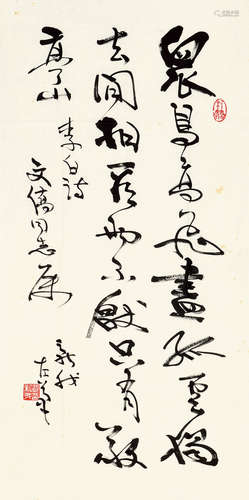 眾鳥高飛盡孤云獨
去閒相看兩不厭只有敬
亭山 李白詩
文同志屬
新我左筆